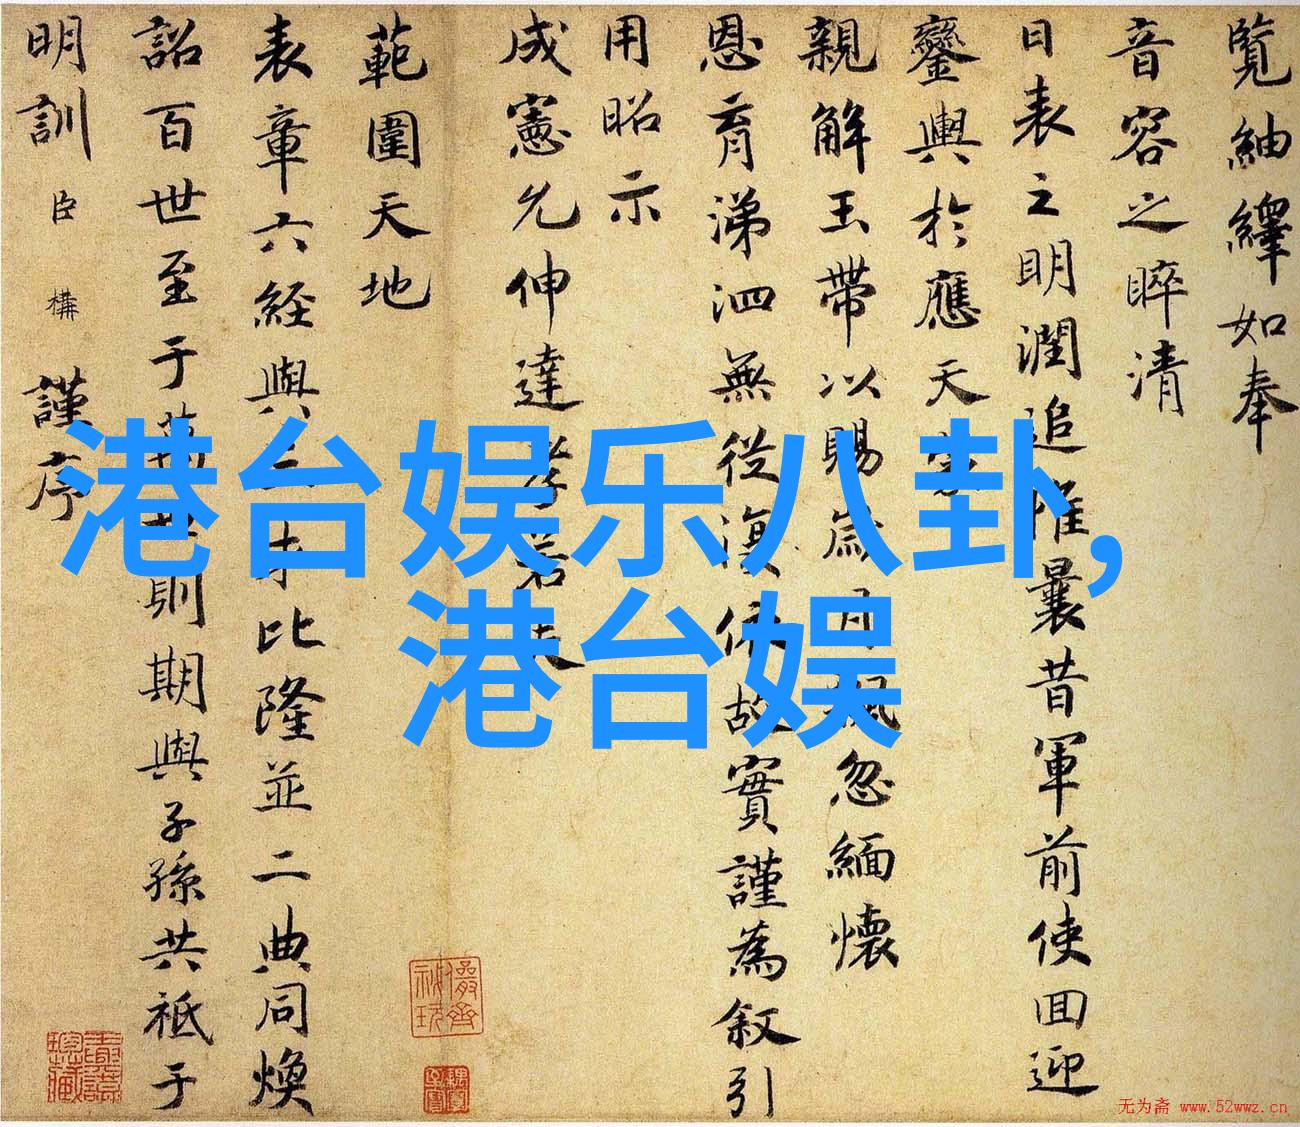 覽紬繹如奉
音容之睟清
日表之明潤追惟曩昔軍前使回迎
鑾輿於應天
親解玉帶以賜
忽緬懷
恩育涕泗無從
故實謹為叙引
用昭示
成憲允伸達孝
範圍天地
表章六經與
比隆並二典同煥
詔百世至于萬
則期與子孫共祗于
明訓臣構謹序
港台娱乐八卦,
港台娱
无为斋 www.52wwz.cn